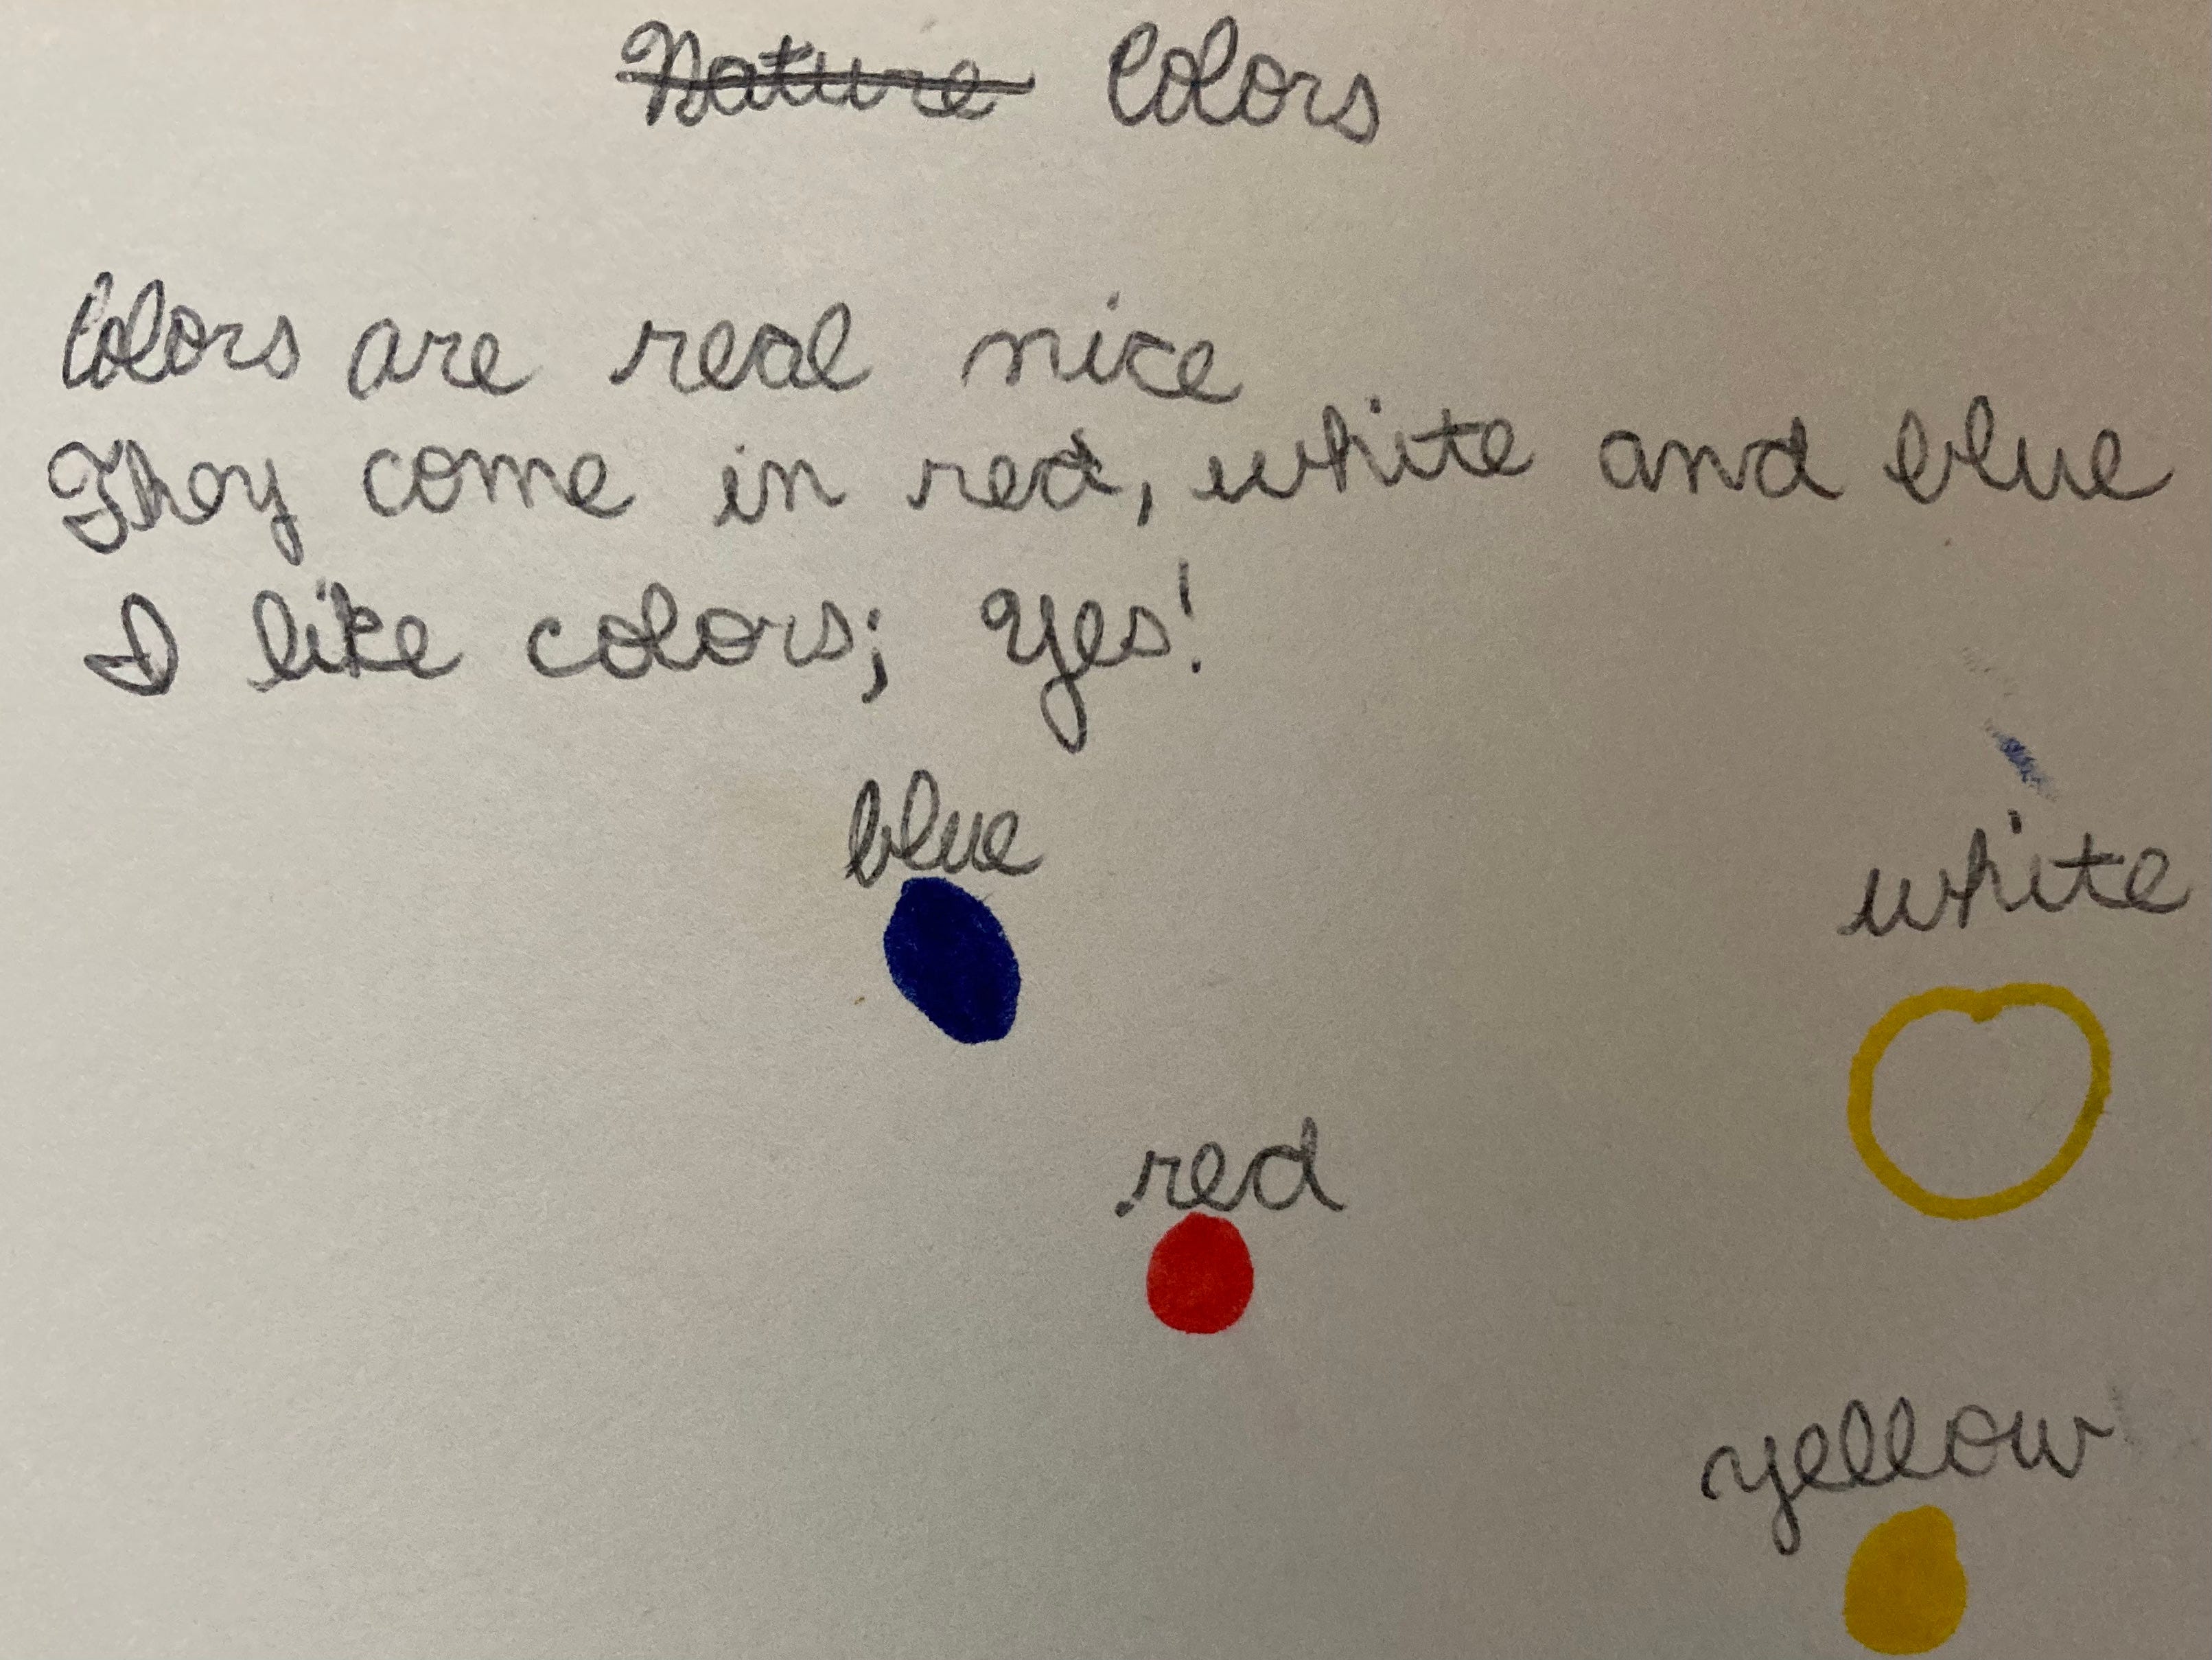 Nature Colors
Colors are real nice
They come in red, white and blue
I like colors; Yes!
blue
white
red
yellow